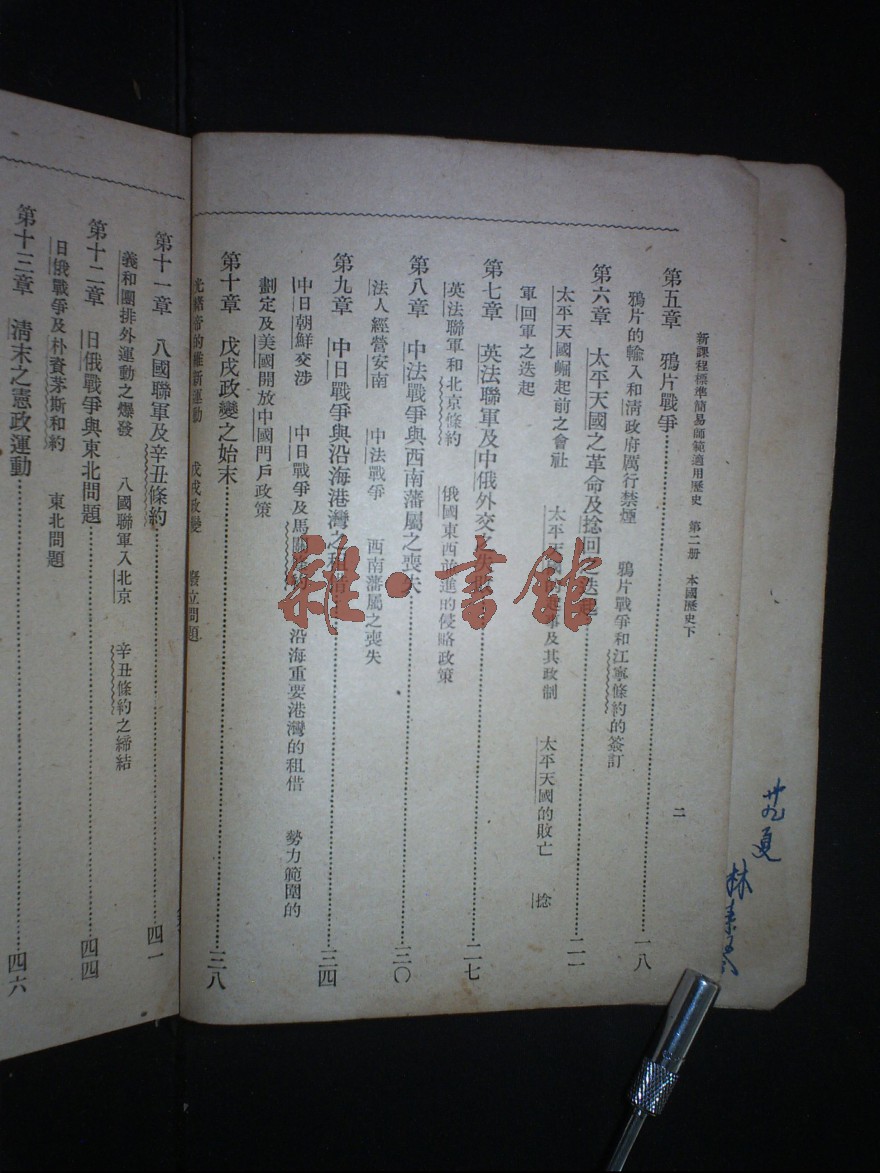 新課程標準簡易師範適用歷史 第二册 本國歷史下
二
第五章 鴉片戰爭……一八
鴉片的輸入和清政府厲行禁煙 鴉片戰爭和江寧條約的簽訂
第六章 太平天國之革命及捻回之迭起……二一
太平天國崛起前之會社 太平天國的 及其政制 太平天國的敗亡 捻
軍回軍之迭起
第七章 英法聯軍及中俄外交之失敗……二七
英法聯軍和北京條約 俄國東西前進的侵略政策
第八章 中法戰爭與西南藩屬之喪失……三〇
法人經營安南 中法戰爭 西南藩屬之喪失
第九章 中日戰爭與沿海港灣之租借……三四
中日朝鮮交涉 中日戰爭及馬關條約 沿海重要港灣的租借 勢力範圍的
劃定及美國開放中國門戶政策
第十章 戊戌政變之始末……三八
光緒帝的維新運動 戊戌政變 廢立問題
第十一章 八國聯軍及辛丑條約……四一
義和團排外運動之爆發 八國聯軍入北京 辛丑條約之締結
第十二章 日俄戰爭與東北問題……四四
日俄戰爭及朴資茅斯和約 東北問題
第十三章 清末之憲政運動……四六
雜·書館
夏
林